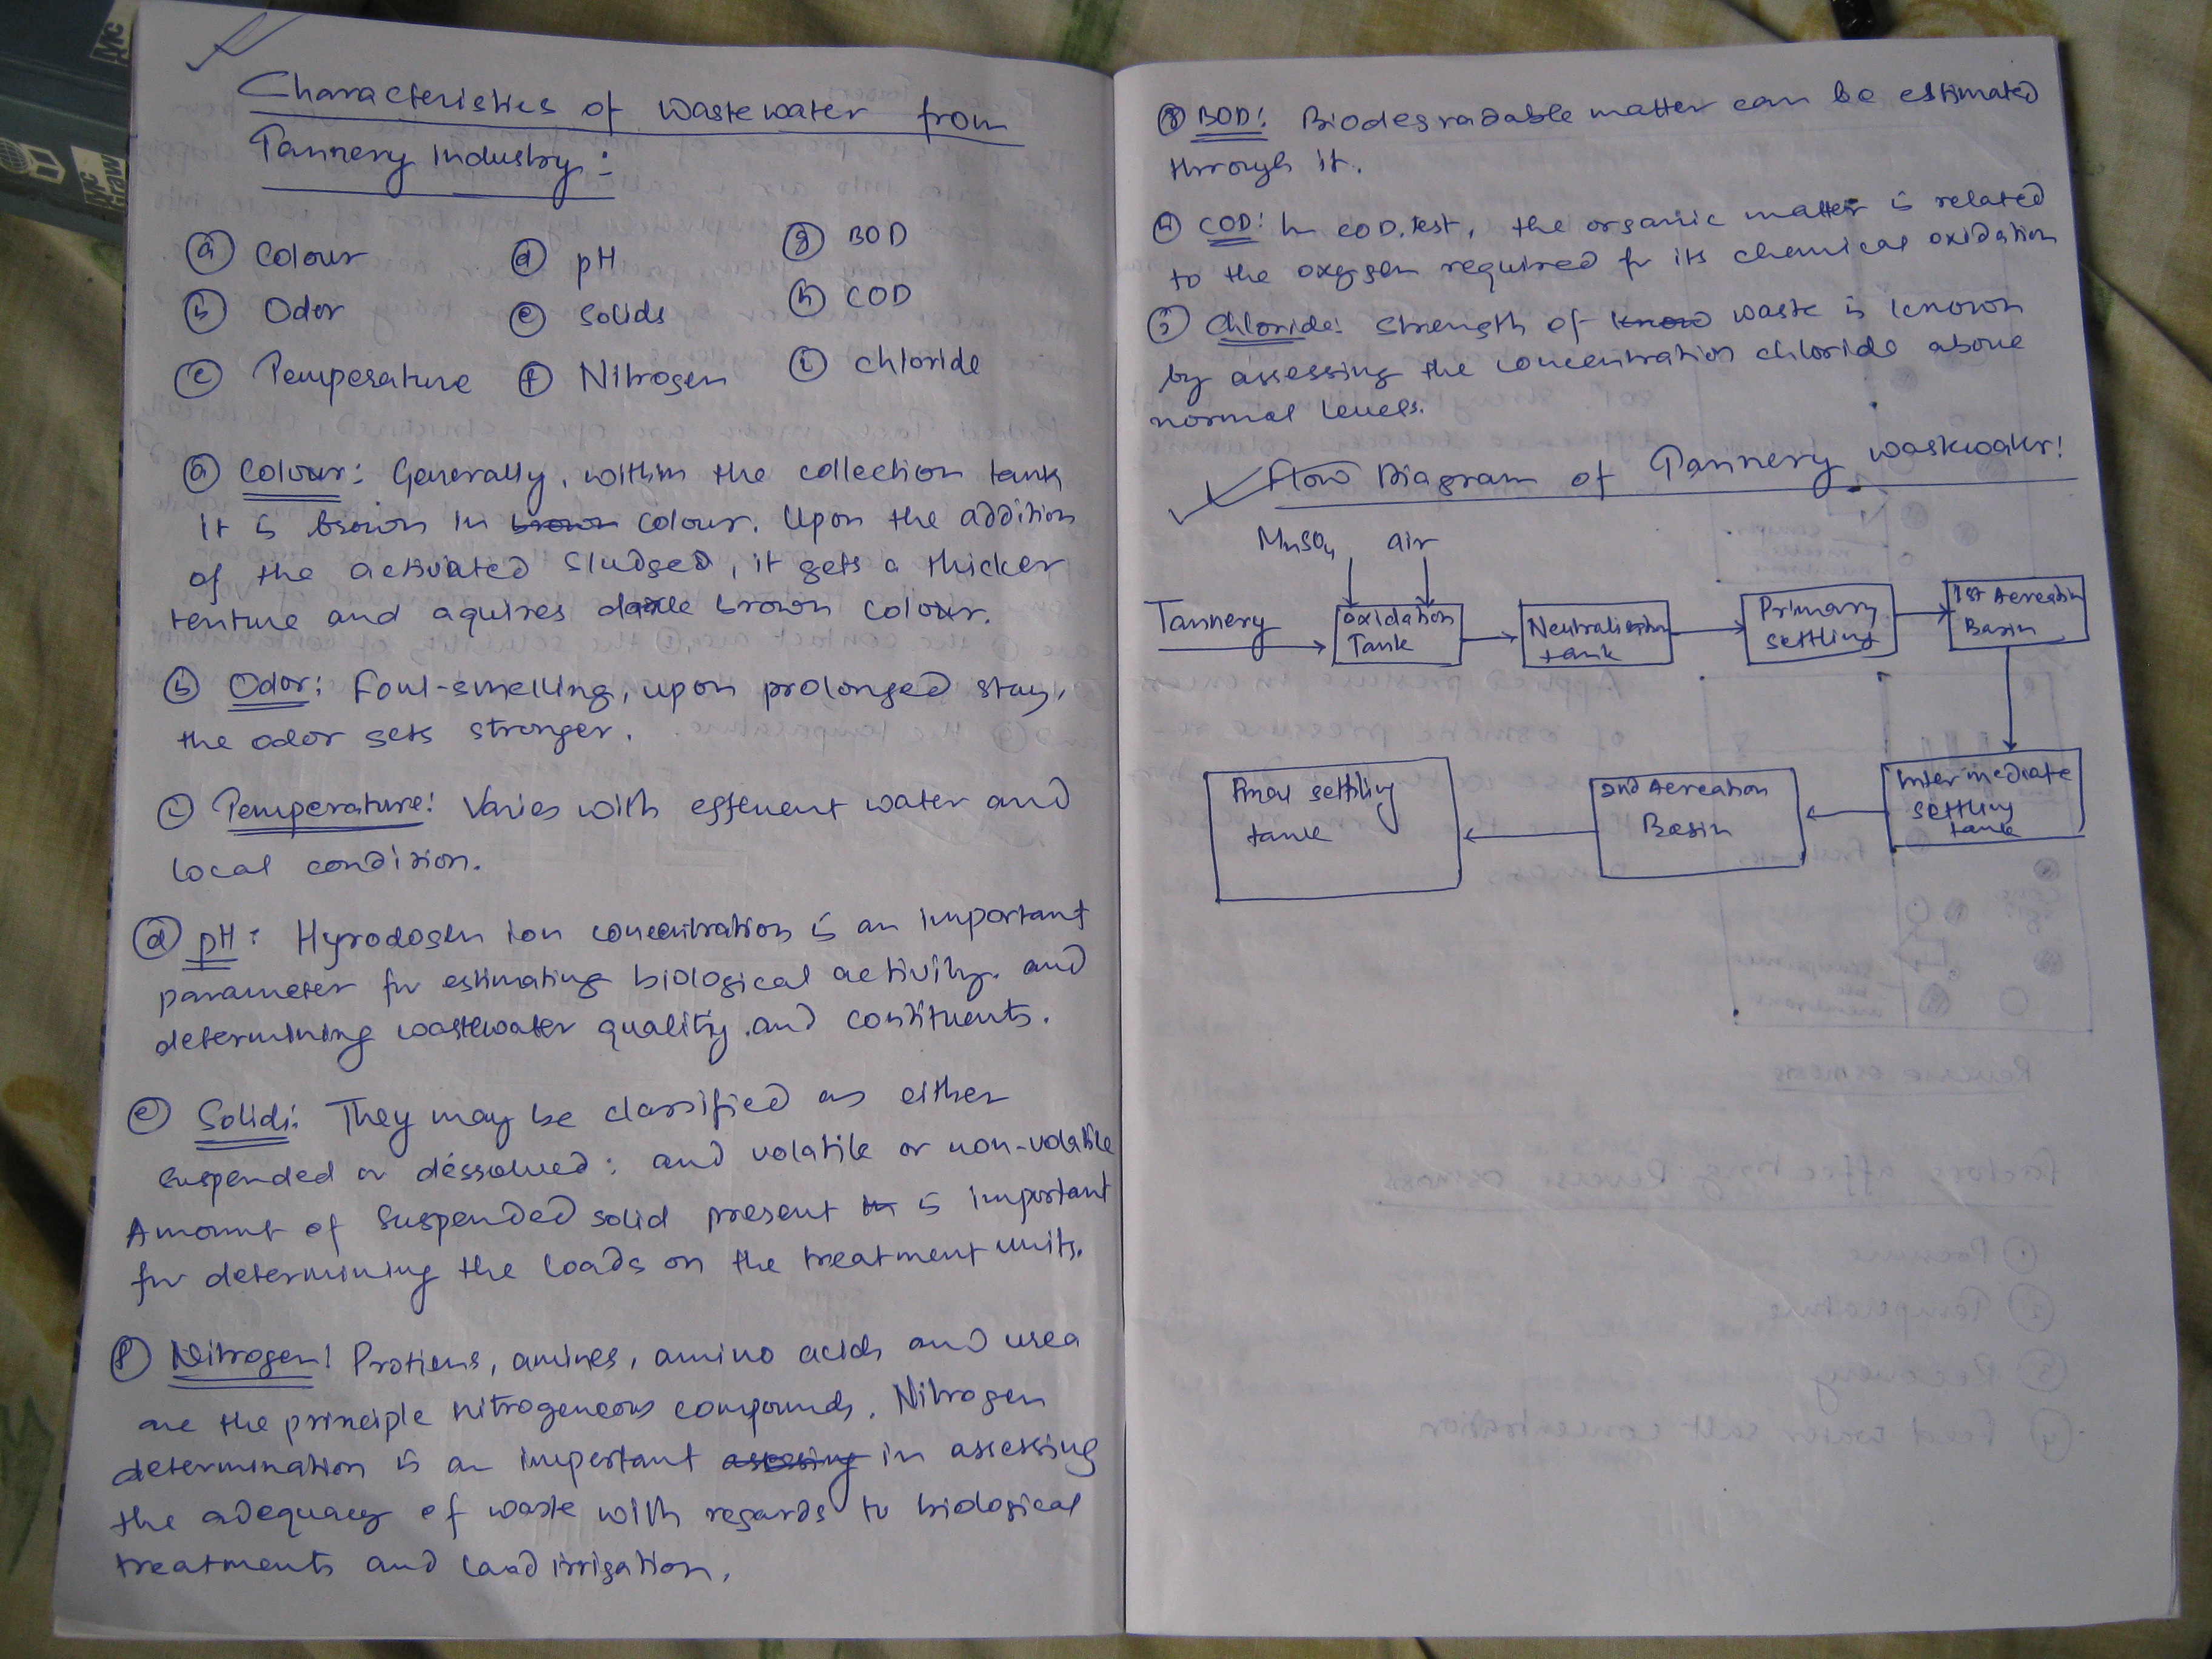 Characteristics of wastewater from
Tannery Industry:
(a) Colour (d) pH (g) BOD
(b) Odor (e) Solids (h) COD
(c) Temperature (f) Nitrogen (i) chloride
(a) Colour: Generally, within the collection tank
it is brown in brown colour. Upon the addition
of the activated sludged, it gets a thicker
tenture and aquires dark brown colour.
(b) Odor: Foul-smelling, upon prolonged stay,
the odor gets stronger.
(c) Temperature: Varies with effluent water and
local condition.
(d) pH: Hyrodogen ion concentration is an important
parameter for estimating biological activity. and
determining wastewater quality. and constituents.
(e) Solids: They may be classified as either
suspended or dessolved: and volatile or non-volatile
Amount of suspended solid present in is important
for determining the loads on the treatment units.
(f) Nitrogen: Protiens, amines, amino acids and urea
are the principle nitrogeneous compounds. Nitrogen
determination is an important assessing in assessing
the adequacy of waste with regards to biological
treatments and land irrigation.
(g) BOD: Biodegradable matter can be estimated
through it.
(h) COD: In COD. test, the organic matter is related
to the oxygen required for its chemical oxidation
Chloride: Strength of know waste is known
by assessing the concentration chloride above
normal levels.
Flow Diagram of Tannery wastewater:
MnSO4 air
Tannery
Oxidation
Tank
Neutralisation
tank
Primary
settling
1st Aereation
Basin
Intermediate
settling
tank
2nd Aereation
Basin
Final settling
tank
Mc
Mc
Graw
Reverse osmosis
Factors affecting Reverse osmosis
(1) Pressure
(2) Temperature
(3) Recovery
(4) Feed water salt concentration